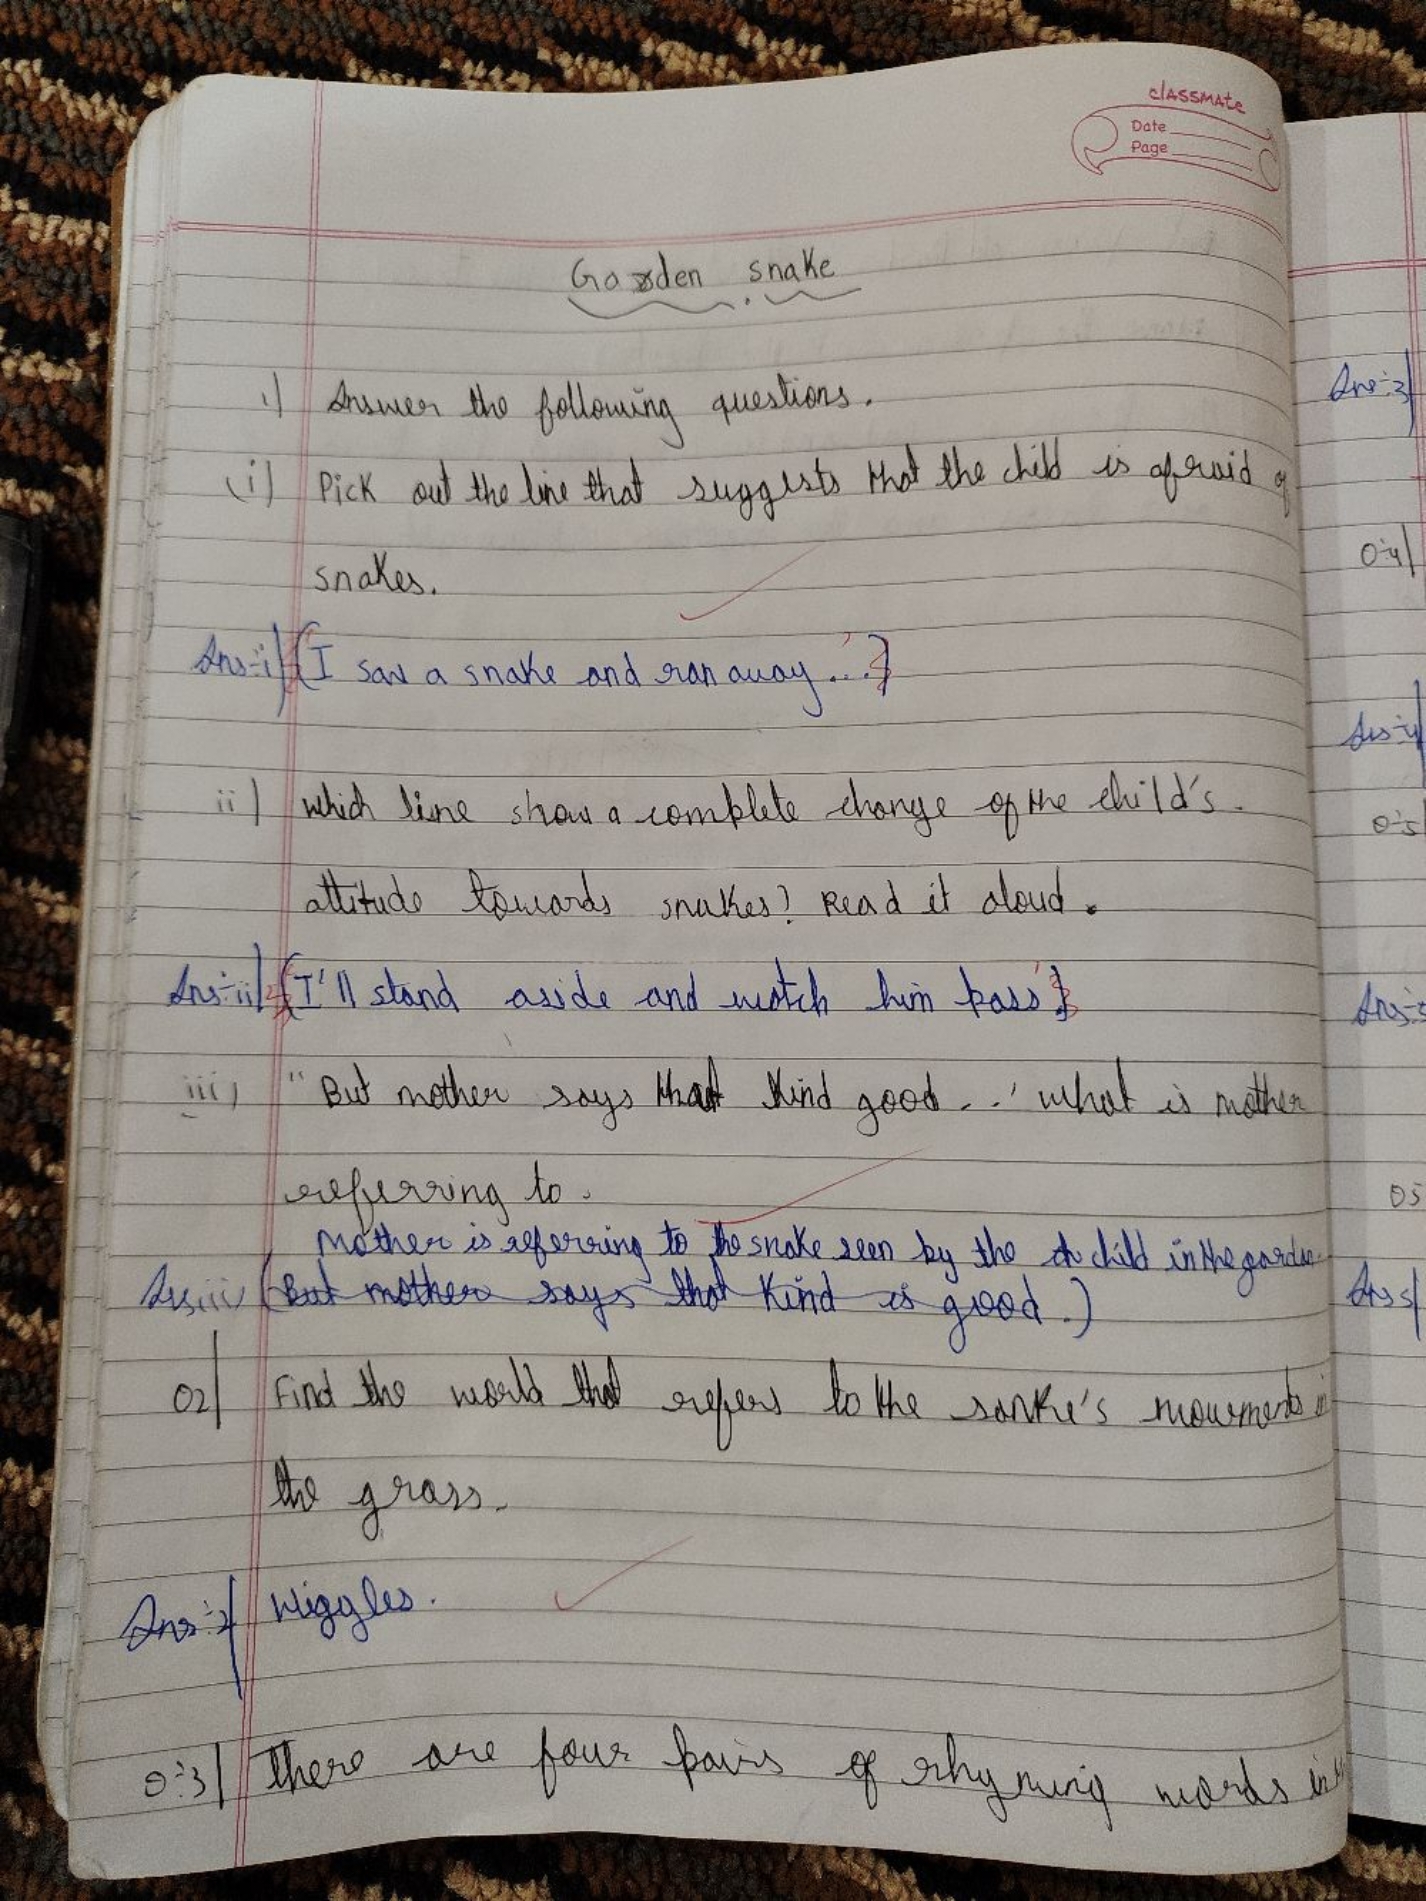 classmate
Date
Page
Garden snake
1) Answer the following questions.
(i) Pick out the line that suggests that the child is afraid of
snakes.
Ans-i) (I saw a snake and ran away...')
ii) which line show a complete change of the child's
attitude towards snakes? Read it aloud.
Ans-ii) (I'll stand aside and watch him pass')
iii) "But mother says that kind good..' what is mother
referring to.
Mother is referring to the snake seen by the ch child in the garden
Ansiii (But mother says that kind is good.)
02) Find the world that refers to the sanke's movements in
the grass.
Ans-2) Wiggles.
0-3) There are four pairs of rhyming words in the
Ans-3)
0-4)
Ans-4)
0-5)
Ans-5
05
Ans5)